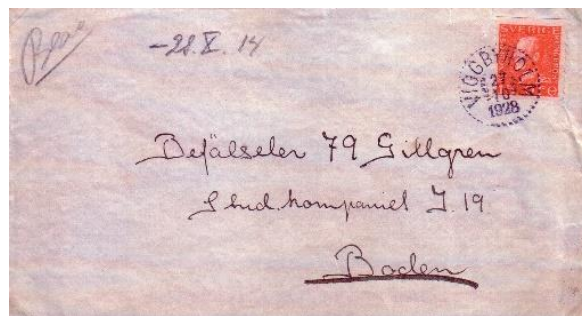 -28. X. 14
SVERIGE
VIGGBYHOLM
27
10
1928
Befälselev 79 Gillgren
Stud. kompaniet I. 19
Boden